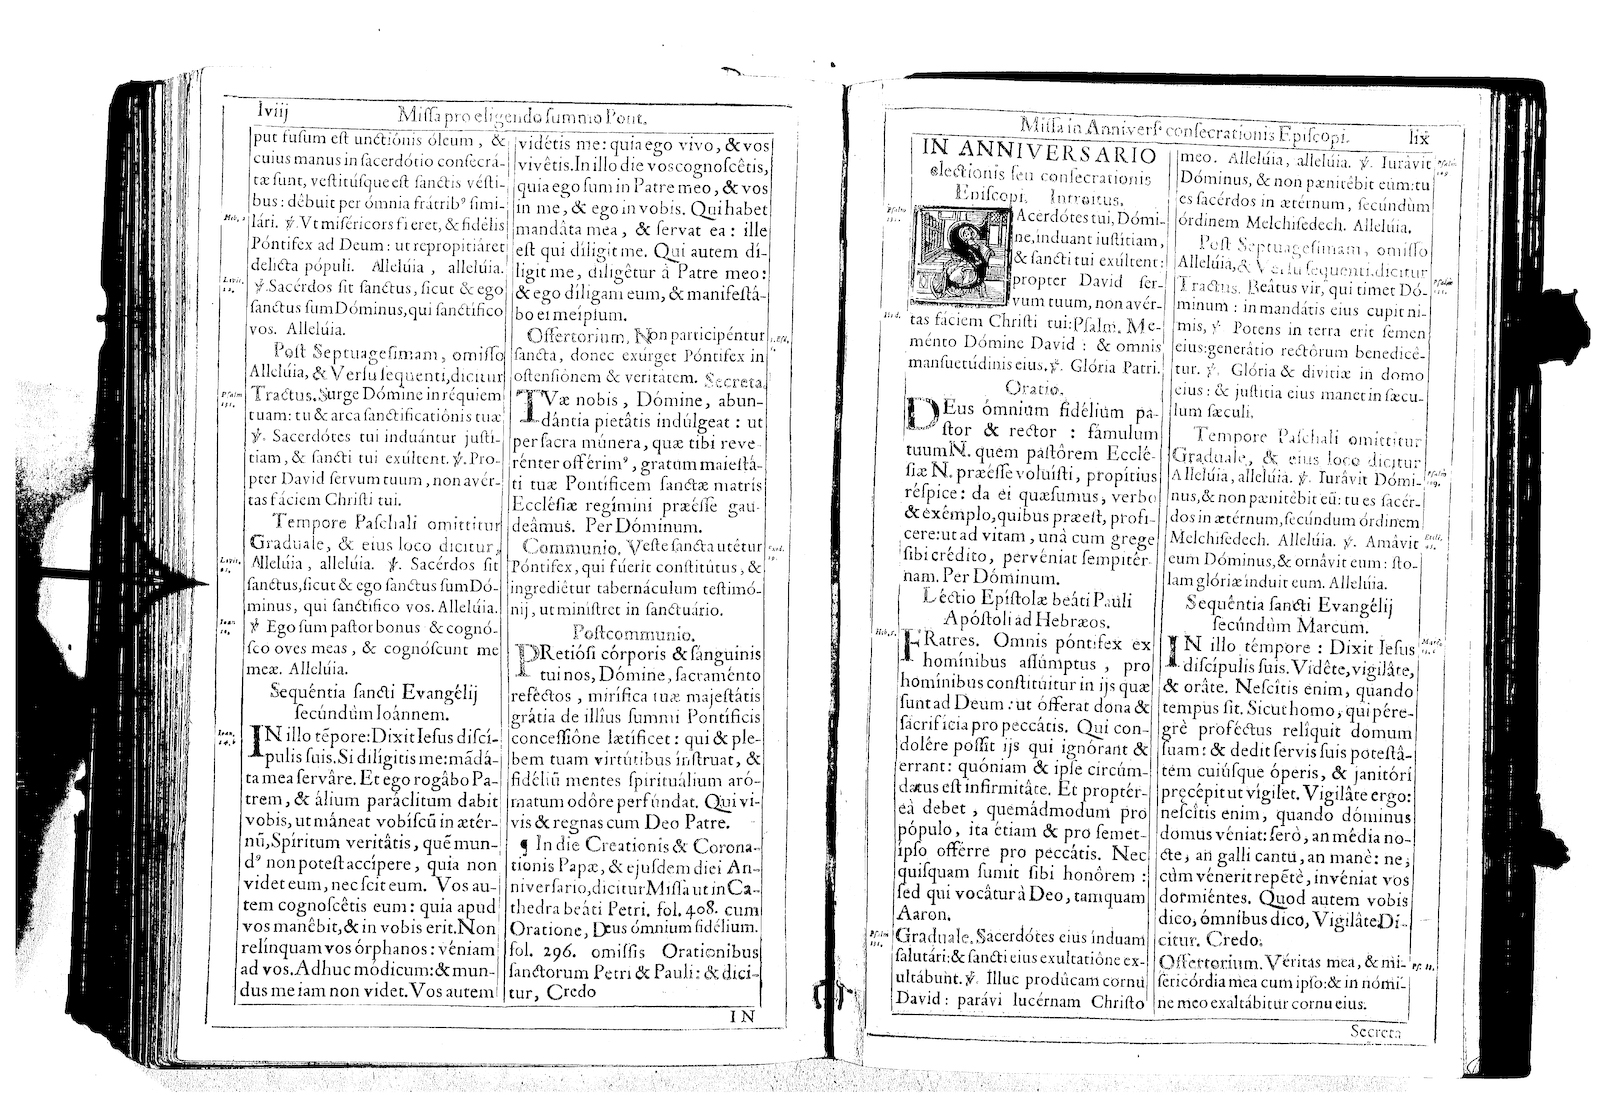 lviij Missa pro eligendo summo Pont.
put fusum est unctiónis óleum, &
cuius manus in sacerdótio consecrá-
tæ sunt, vestitúsque est sanctis vésti-
bus: débuit per ómnia frátrib⁹ simi-
lári. ℣. Vt miséricors fieret, & fidélis
Póntifex ad Deum: ut repropitiáret
delicta pópuli. Allelúia, allelúia.
℣. Sacérdos sit sanctus, sicut & ego
sanctus sum Dóminus, qui sanctífico
vos. Allelúia.
Post Septuagesimam, omisso
Allelúia, & Versu sequenti, dicitur
Tractus. Surge Dómine in réquiem
tuam: tu & arca sanctificatiónis tuæ
℣. Sacerdótes tui induántur justi-
tiam, & sancti tui exúltent. ℣. Pro-
pter David servum tuum, non avér-
tas fáciem Christi tui.
Tempore Paschali omittitur
Graduale, & eius loco dicitur,
Allelúia, allelúia. ℣. Sacérdos sit
sanctus, sicut & ego sanctus sum Dó-
minus, qui sanctífico vos. Allelúia.
℣ Ego sum pastor bonus & cognó-
sco oves meas, & cognóscunt me
meæ. Allelúia.
Sequêntia sancti Evangélij
secúndùm Ioánnem.
IN illo tẽpore: Dixit Iesus discí-
pulis suis. Si dilígitis me: mãdá-
ta mea serváre. Et ego rogâbo Pa-
trem, & álium paráclitum dabit
vobis, ut máneat vobíscũ in ætér-
nũ, Spíritum veritâtis, quẽ mun-
d⁹ non potest accípere, quia non
videt eum, nec scit eum. Vos au-
tem cognoscêtis eum: quia apud
vos manêbit, & in vobis erit. Non
relínquam vos órphanos: véniam
ad vos. Adhuc módicum: & mun-
dus me iam non videt. Vos autem
vidétis me: quia ego vivo, & vos
vivêtis. In illo die vos cognoscêtis,
quia ego sum in Patre meo, & vos
in me, & ego in vobis. Qui habet
mandâta mea, & servat ea: ille
est qui díligit me. Qui autem dí-
ligit me, diligêtur â Patre meo:
& ego díligam eum, & manifestâ-
bo ei meípsum.
Offertorium. Non participéntur
sancta, donec exúrget Póntifex in
ostensiónem & veritatem. Secreta.
TVæ nobis, Dómine, abun-
dántia pietâtis indúlgeat: ut
per sacra múnera, quæ tibi reve-
rénter offérim⁹, gratum maiestâ-
ti tuæ Pontíficem sanctæ matris
Ecclésiæ regímini præésse gau-
deâmus. Per Dóminum.
Communio. Veste sancta utétur
Póntifex, qui fúerit constitútus, &
ingrediétur tabernáculum testimó-
nij, ut minístret in sanctuário.
Postcommunio.
PRetiósi córporis & sánguinis
tui nos, Dómine, sacraménto
reféctos, mirífica tuæ majestátis
grátia de illíus summi Pontíficis
concessiône lætíficet: qui & ple-
bem tuam virtútibus ínstruat, &
fidéliũ mentes spirituálium aró-
matum odôre perfúndat. Qui vi-
vis & regnas cum Deo Patre.
¶ In die Creationis & Corona-
tionis Papæ, & ejusdem diei An-
niversario, dicitur Missa ut in Ca-
thedra beáti Petri. fol. 408. cum
Oratione, Deus ómnium fidélium.
fol. 296. omissis Orationibus
sanctorum Petri & Pauli: & dici-
tur, Credo
IN
Missa in Annivers. consecrationis Episcopi. lix
IN ANNIVERSARIO
electionis seu consecrationis
Episcopi. Introitus.
SAcerdótes tui, Dómi-
ne, induant iustítiam,
& sancti tui exúltent:
propter David ser-
vum tuum, non avér-
tas fáciem Christi tui: Psalm. Me-
ménto Dómine David: & omnis
mansuetúdinis eius. ℣. Glória Patri.
Oratio.
DEus ómnium fidélium pa-
stor & rector: fámulum
tuum N. quem pastôrem Ecclé-
siæ N. præésse voluísti, propítius
réspice: da ei quæsumus, verbo
& exémplo, quibus præest, profí-
cere: ut ad vitam, unâ cum grege
sibi crédito, pervéniat sempitér-
nam. Per Dóminum.
Léctio Epístolæ beáti Pauli
Apóstoli ad Hebræos.
FRatres. Omnis póntifex ex
homínibus assúmptus, pro
homínibus constitúitur in ijs quæ
sunt ad Deum: ut ófferat dona &
sacrifícia pro peccátis. Qui con-
dolére possit ijs qui ignórant &
errant: quóniam & ipse circúm-
datus est infirmitâte. Et proptér-
eà debet, quemádmodum pro
pópulo, ita étiam & pro semet-
ípso offérre pro peccátis. Nec
quisquam sumit sibi honôrem:
sed qui vocâtur à Deo, tamquam
Aaron.
Graduale. Sacerdótes eius índuam
salutári: & sancti eius exultatiône ex-
ultábunt. ℣. Illuc prodúcam cornu
David: parávi lucérnam Christo
meo. Allelúia, allelúia. ℣. Iurâvit
Dóminus, & non pænitébit eum: tu
es sacérdos in ætérnum, secúndùm
órdinem Melchísedech. Allelúia.
Post Septuagesimam, omisso
Allelúia, & Versu sequenti, dicitur
Tractus. Beátus vir, qui timet Dó-
minum: in mandátis eius cupit ni-
mis, ℣ Potens in terra erit semen
eius: generátio rectôrum benedicé-
tur. ℣. Glória & divítiæ in domo
eius: & justítia eius manet in sæcu-
lum sæculi.
Tempore Paschali omittitur
Graduale, & eius loco dicitur
Allelúia, allelúia. ℣. Iurâvit Dómi-
nus, & non pænitébit eũ: tu es sacér-
dos in ætérnum, secúndum órdinem
Melchísedech. Allelúia. ℣. Amâvit
eum Dóminus, & ornávit eum: sto-
lam glóriæ índuit eum. Allelúia.
Sequêntia sancti Evangélij
secúndùm Marcum.
IN illo témpore: Dixit Iesus
discípulis suis. Vidête, vigilâte,
& orâte. Nescítis enim, quando
tempus sit. Sicut homo, qui pére-
grè proféctus relíquit domum
suam: & dedit servis suis potestâ-
tem cuiúsque óperis, & janitóri
præcépit ut vígilet. Vigilâte ergo:
nescítis enim, quando dóminus
domus véniat: serò, an média no-
cte, an galli cantu, an manè: ne,
cùm vénerit repẽtè, invéniat vos
dormiéntes. Quod autem vobis
dico, ómnibus dico, Vigilâte. Dí-
citur. Credo.
Offertorium. Véritas mea, & mi-
sericórdia mea cum ipso: & in nómi-
ne meo exaltábitur cornu eius.
Secreta